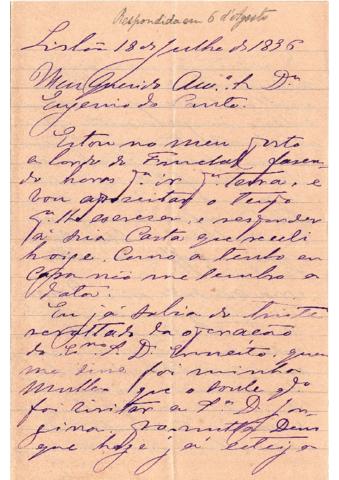 Respondida em 6 d'Agosto
Lisbôa 18 de Julho de 1896
Meu Querido Am.º Sr. Dr.
Eugenio do Canto.
Estou no meu posto
a bordo do Funchal fazen
do horas p.ª ir p.ª terra, e
vou aproveitar o tempo
p.ª lhe escrever, e responder
á sua Carta que recebi
hoje. Como a tenho em
casa não me lembro a
data.
Eu já sabia do triste
resultado da operação
do Ex.mo Sr. D. Ernesto, quem
me disse foi minha
mulher que o soube q.do
foi visitar a Sr.ª D.
permitta Deus
que hoje já esteja